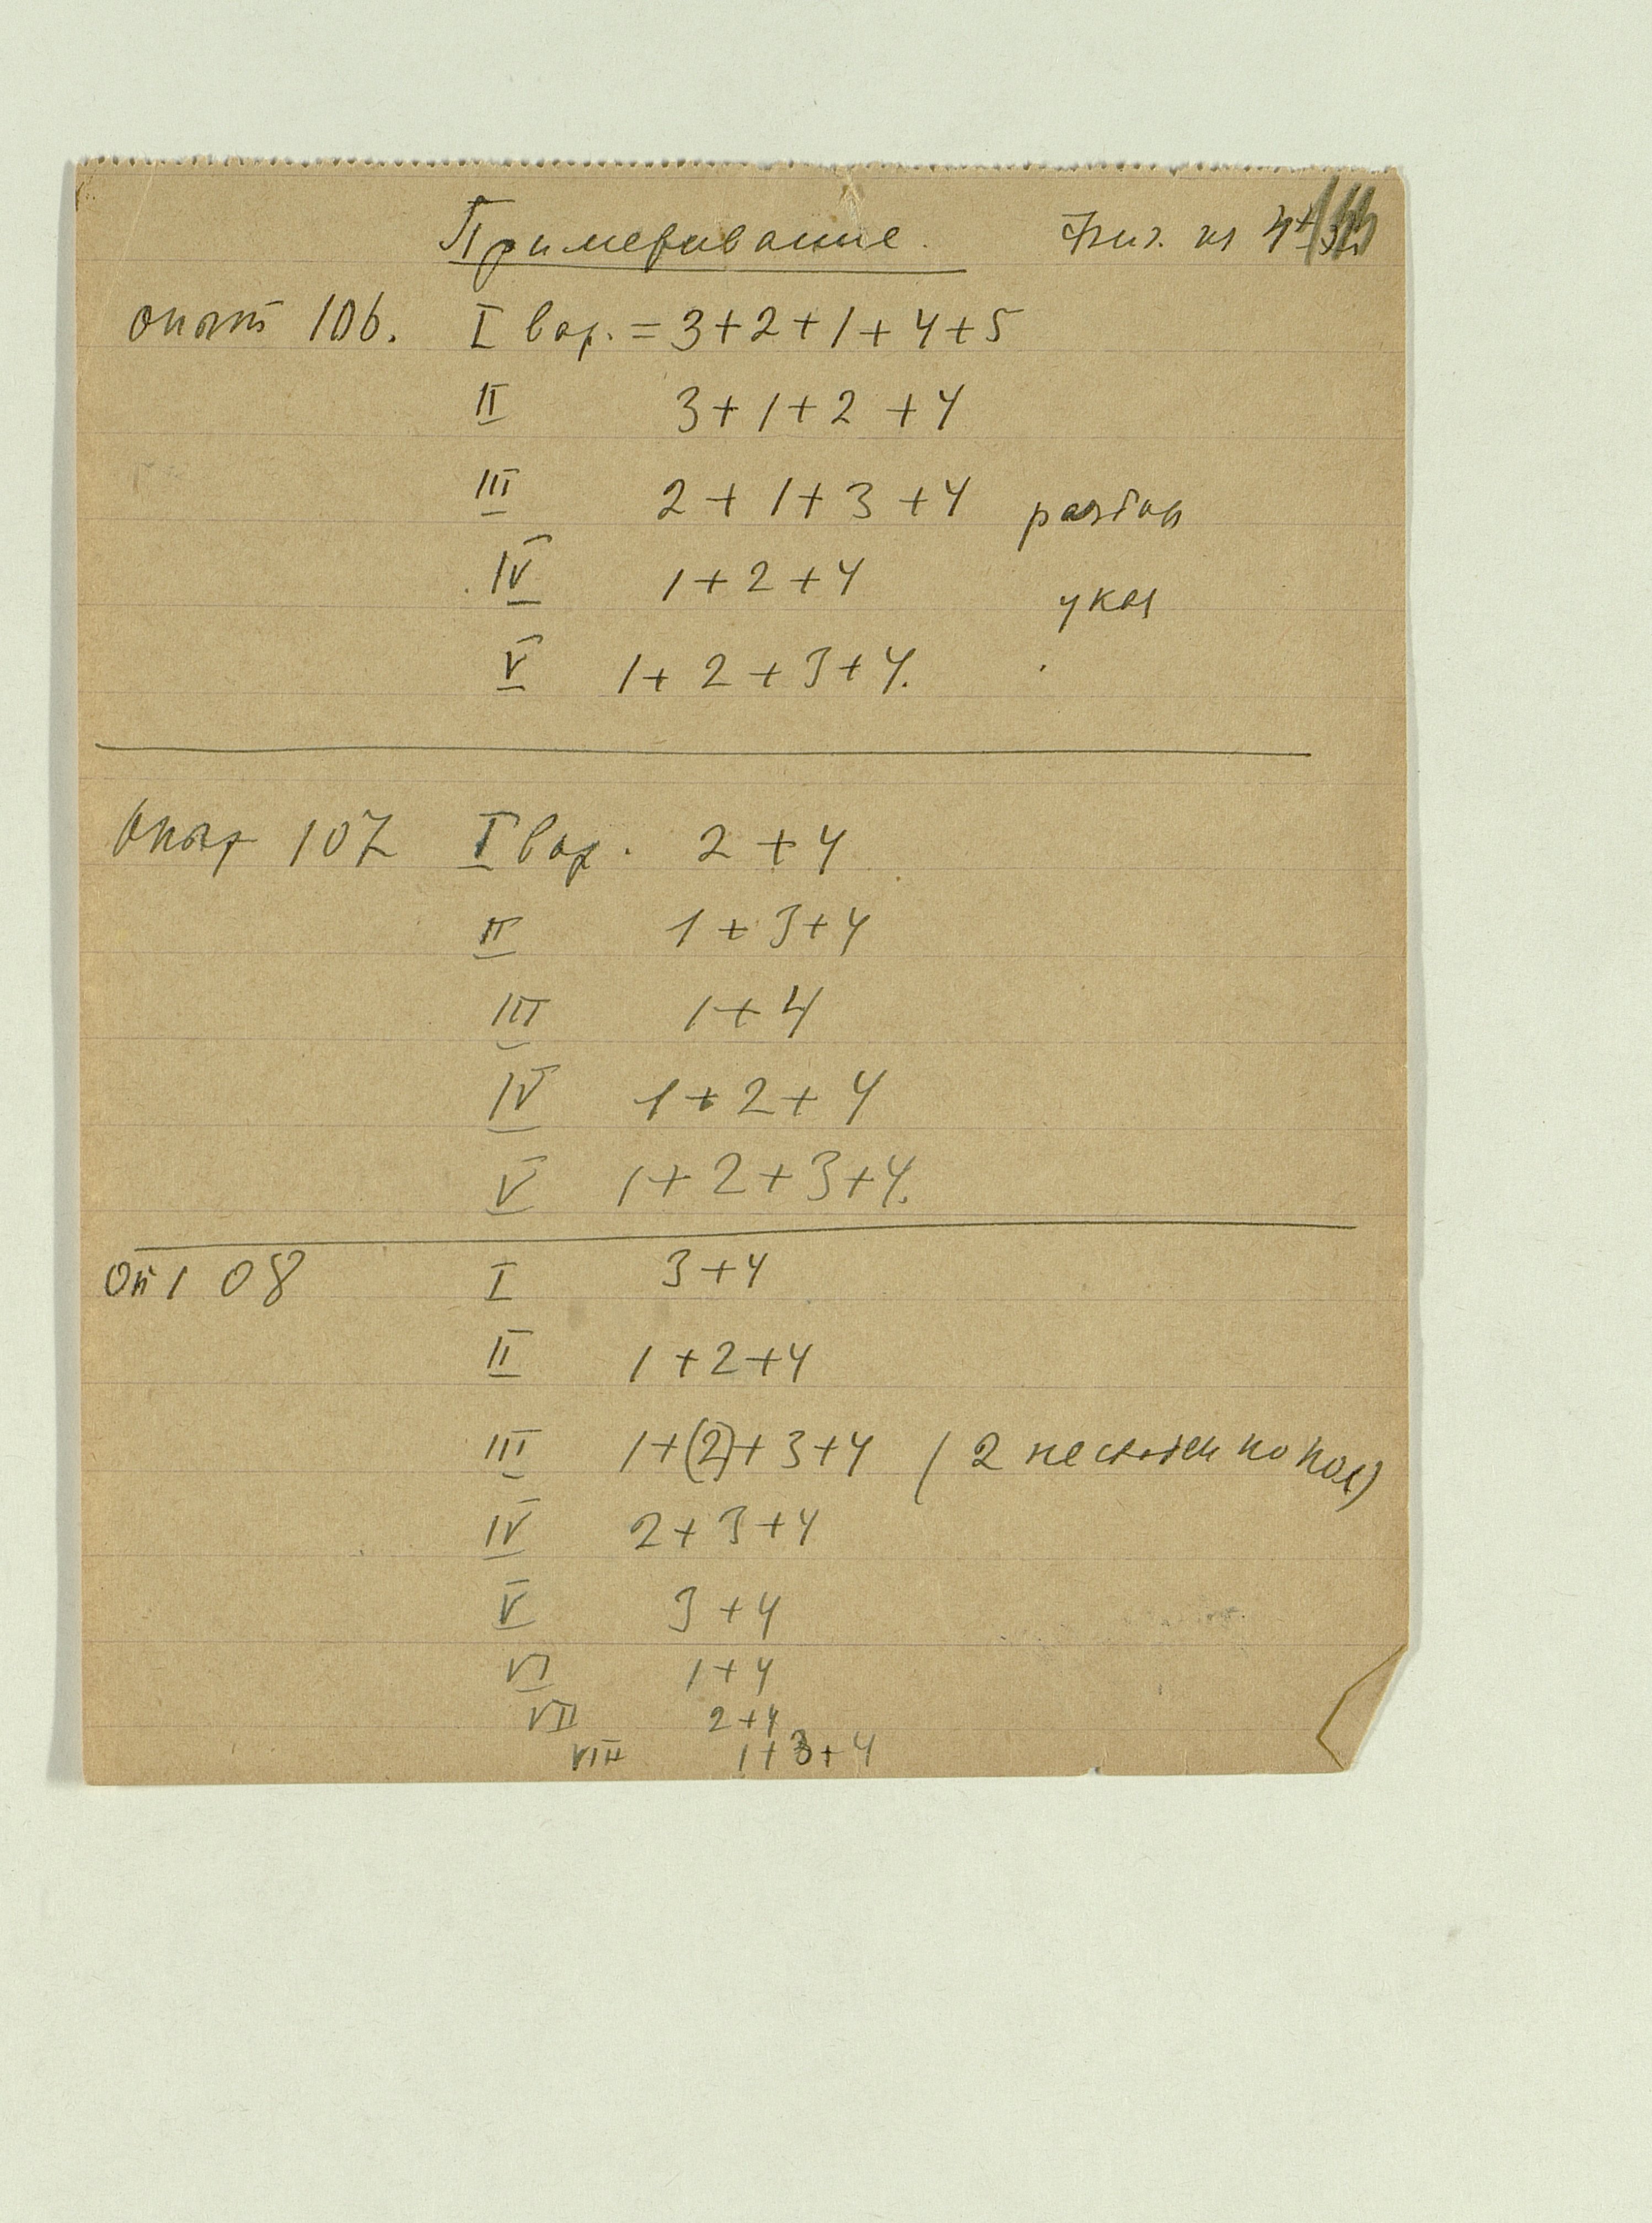 Примеривание.
опыт 106. I вар. = 3+2+1+4+5
II 3+1+2+4
III 2+1+3+4
IV 1+2+4
V 1+2+3+4.
Опыт 107 I вар. 2+4
II 1+3+4
III 1+4
IV 1+2+4
V 1+2+3+4.
Оп 108 I 3+4
II 1+2+4
III 1+(2)+3+4 (2 не
IV 2+3+4
V 3+4
VI 1+4
VII 2+4
VIII 1+3+4